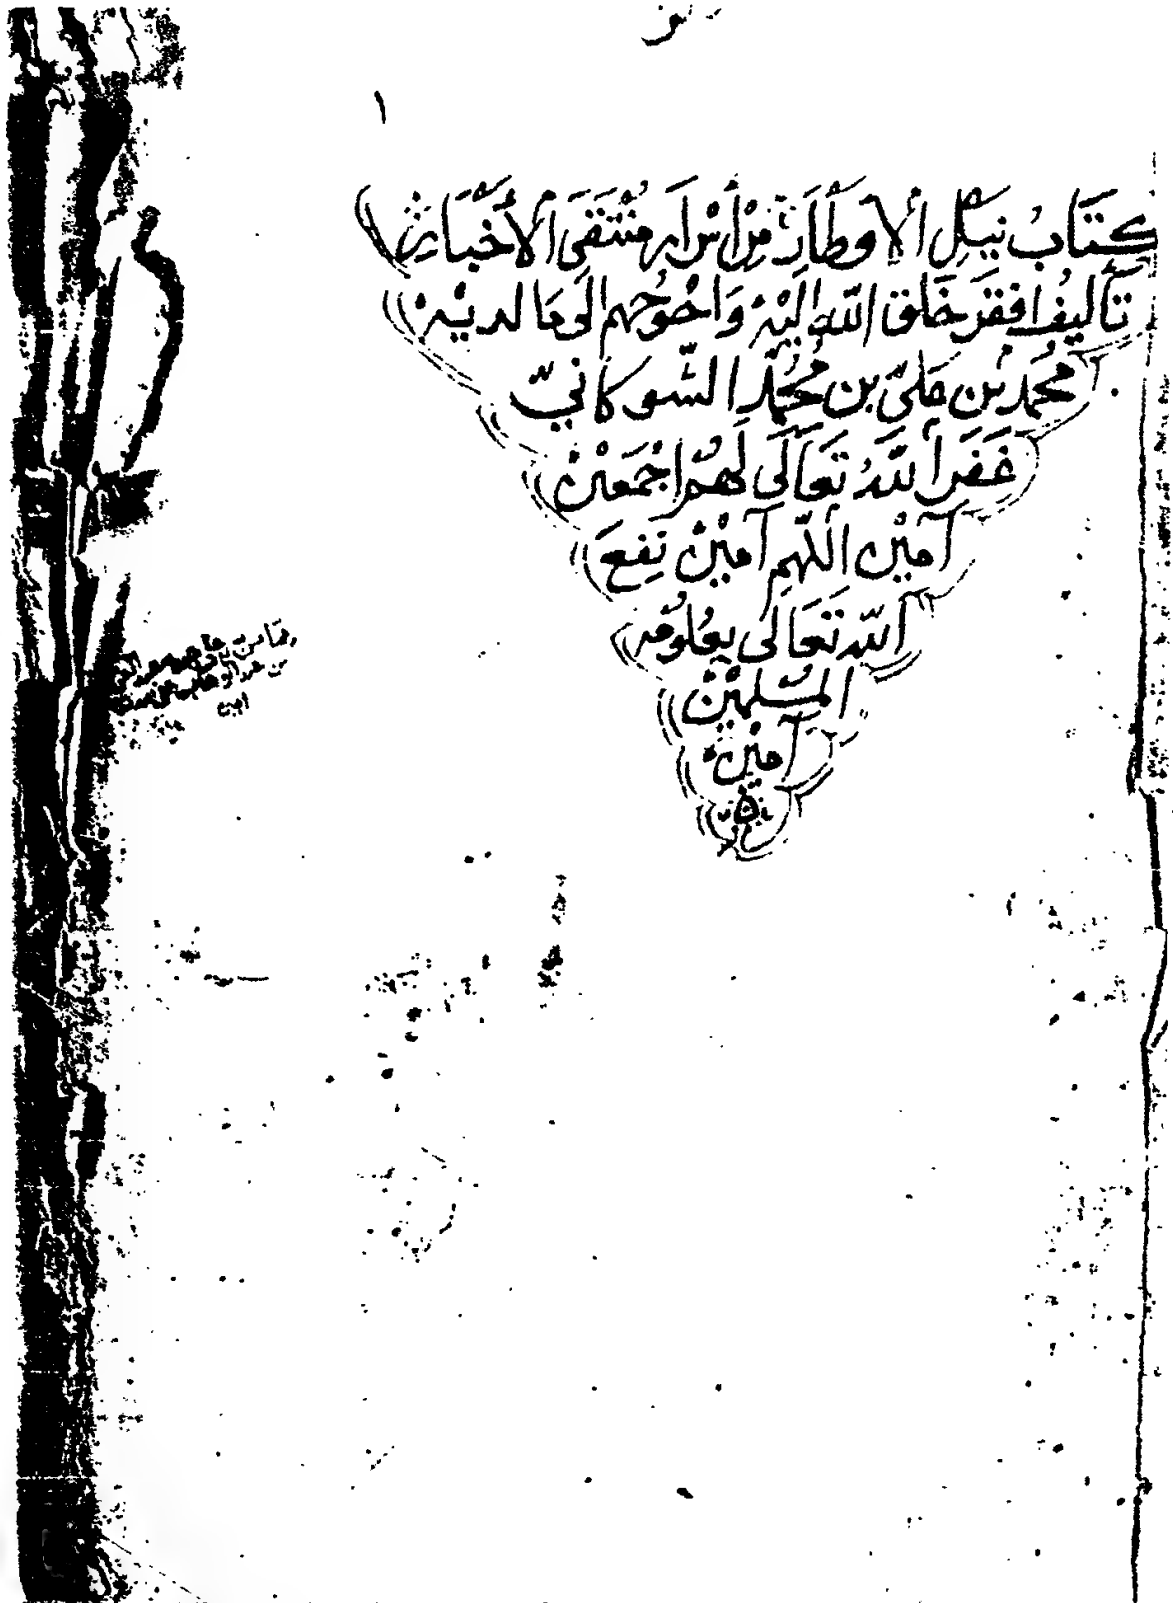 ١
كِتَابُ نَيْلِ الأَوْطَارِ مِنْ أَسْرَارِ مُنْتَقَى الأَخْبَارِ
تأليفُ افقر خلق الله اليه وَاحْوجهم الى مَا لديه
مُحمدْ بْن عليّ بن مُحمّد الشّوكانيّ
غَفَرَ اللّهُ تَعَالَى لَهُم اجْمَعيْن
آميْن اللّهم آميْن نفع
اللّه تَعَالَى بعُلُومه
المُسْلميْن
آميْن